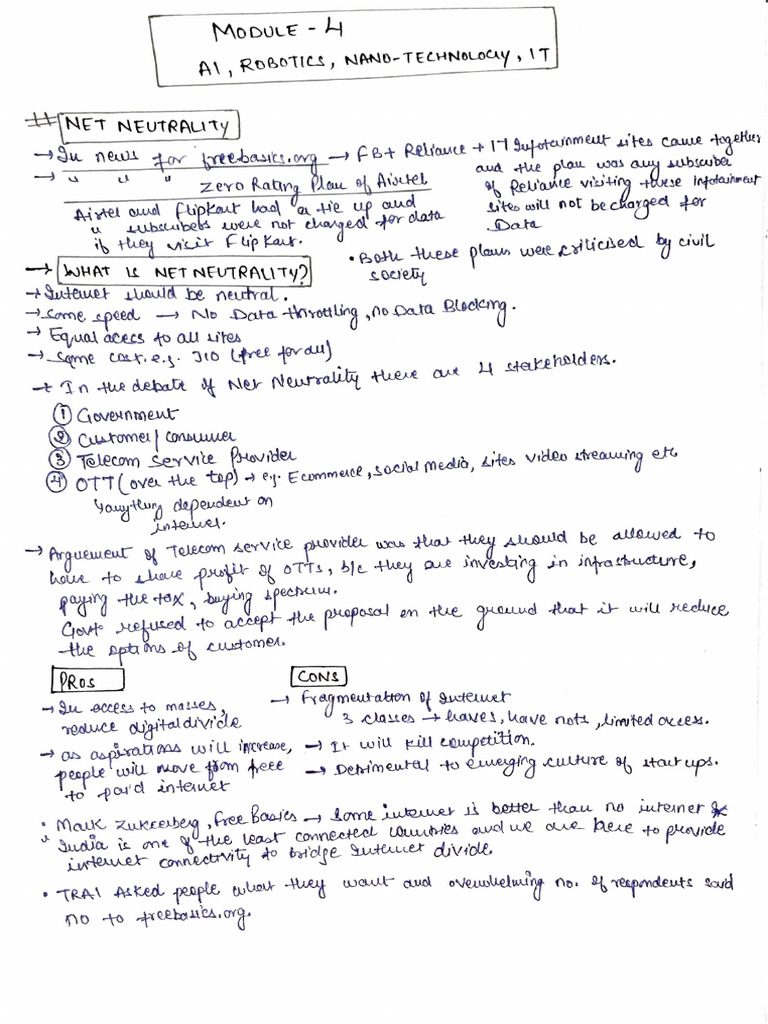 MODULE - 4
AI, ROBOTICS, NANO-TECHNOLOGY, IT
# NET NEUTRALITY
→ In news for freebasics.org → FB + Reliance + 17 Infotainment sites came together
and the plan was any subscriber
of Reliance visiting these infotainment
sites will not be charged for
Data
→ " " " Zero Rating Plan of Airtel
Airtel and Flipkart had a tie up and
" subscribers were not charged for data
if they visit Flipkart.
• Both these plans were criticised by civil
society
→ WHAT IS NET NEUTRALITY?
→ Internet should be neutral.
→ Same speed → No Data throttling, no Data Blocking.
→ Equal acess to all sites
→ Same cost. e.g. JIO (free for all)
→ In the debate of Net Neutrality there are 4 stakeholders.
① Government
② Customer/consumer
③ Telecom service provider
④ OTT (over the top) → e.g. Ecommerce, social media, sites video streaming etc
↳ anything dependent on
internet.
→ Arguement of Telecom service provider was that they should be allowed to
have to share profit of OTTs, b/c they are investing in infrastructure,
paying the tax, buying spectrum.
Govt refused to accept the proposal on the ground that it will reduce
the options of customer.
PROS
→ In access to masses,
reduce digital divide
→ as aspirations will increase,
people will move from free
to paid internet
CONS
→ Fragmentation of Internet
3 classes → haves, have nots, limited access.
→ It will kill competition.
→ Detrimental to emerging culture of start ups.
• Mark Zukerberg, free Basics → Some internet is better than no internet &
" India is one of the least connected countries and we are here to provide
internet connectivity to bridge Internet divide.
• TRAI Asked people what they want and overwhelming no. of respondents said
no to freebasics.org.